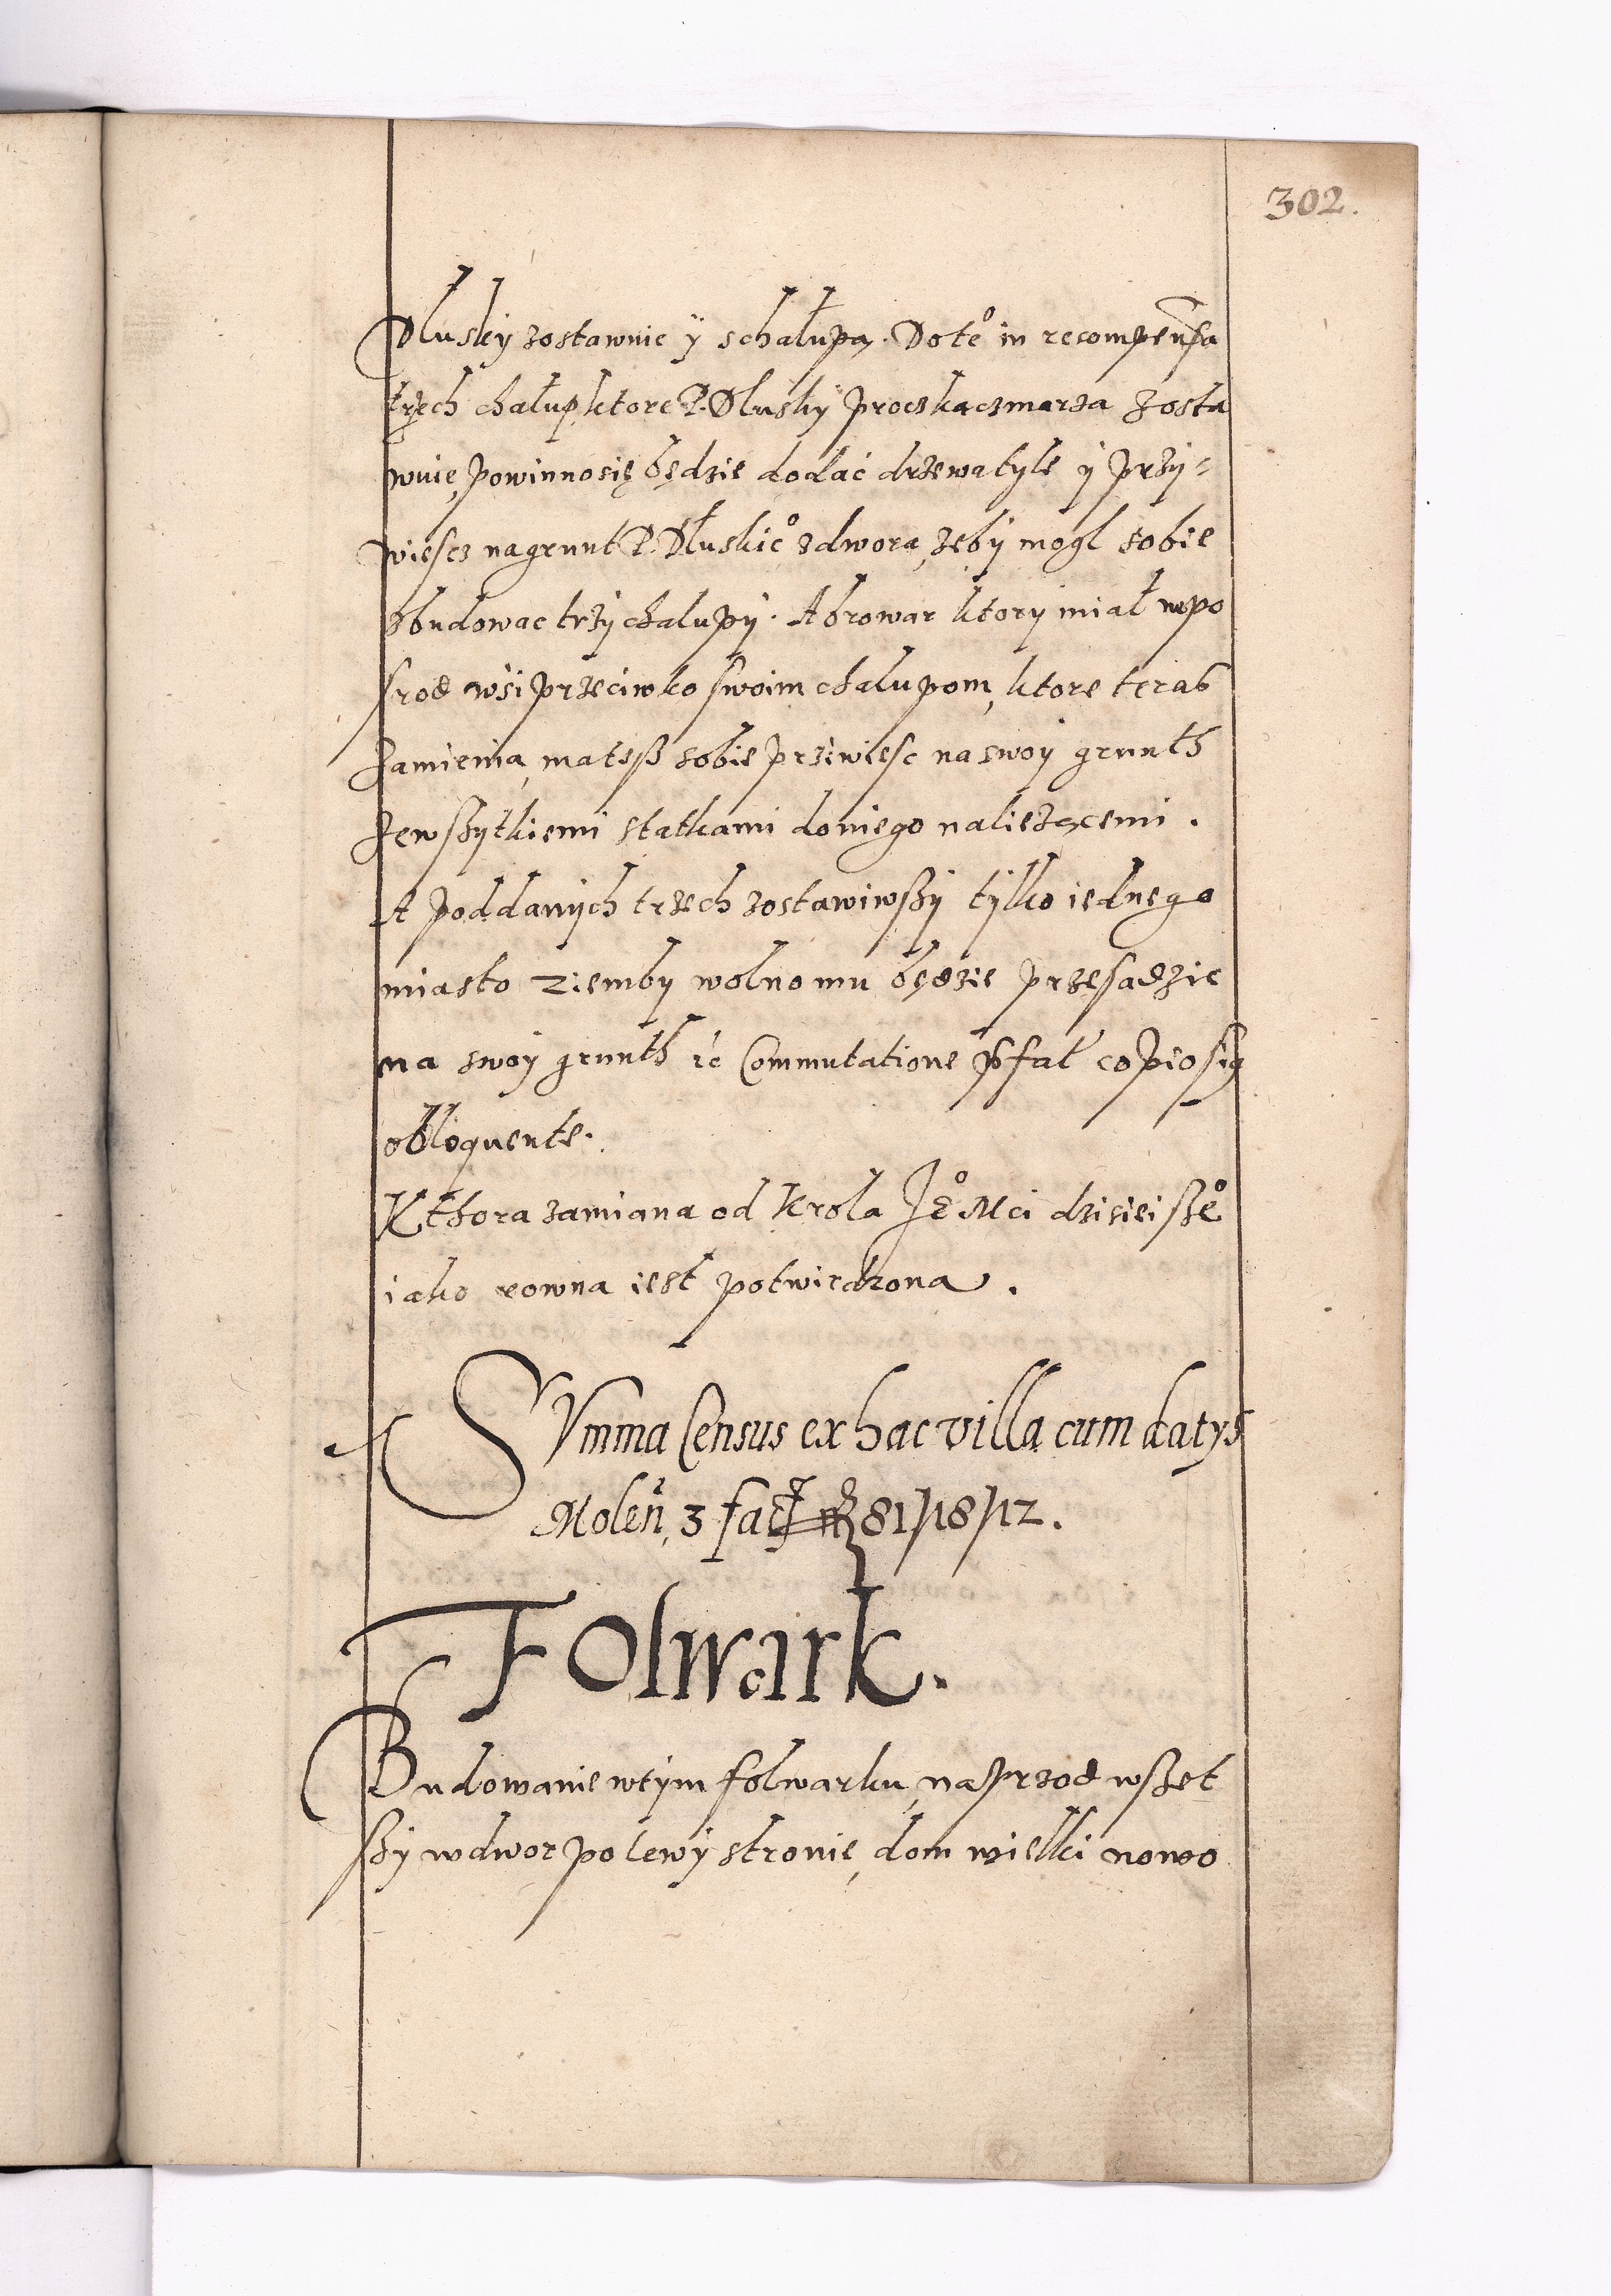 302.
Dluskÿ zostawuie ÿ schałupą. Dote° in recompensa
trzech chałup, ktore P. Dluskÿ procz kaczmarza zosta
wuie, powinno się będzie dodać drzewa tyle ÿ przÿ=
wiescz na grunt P. Dłuskie° z dwora, zebÿ mogl sobie
zbudowac trzÿ chalupÿ. A browar ktorÿ miał wpo
srod wsi przeciwko swoim chalupom, ktore teraß
zamienia, ma teß sobie prziwiesc na swoÿ grunth
ze wßytkiemi statkami do niego nalieżącemi.
A poddanÿch trzech zostawiwßÿ tÿlko iednego
miasto Ziemby wolno mu będzie przesadzic
na swoÿ grunth ic Commutatione pfat copiosię
obloquente.
Kthora zamiana od Krola Je° Mci dzisieißę°
iako rowna iest potwierdzona.
SVmma Census ex hac villa cum datys
Molen, 3 fact 81/18/12.
FOlwark.
Budowanie w tÿm folwarku, naprzod wßet
ßÿ w dwor po lewÿ stronie, dom wielki nowo